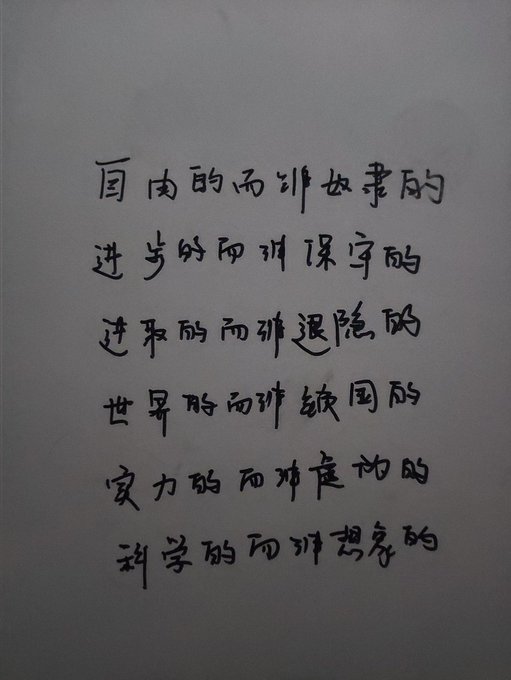 自由的而非奴隶的
进步的而非保守的
进取的而非退隐的
世界的而非锁国的
实力的而非虚的
科学的而非想象的